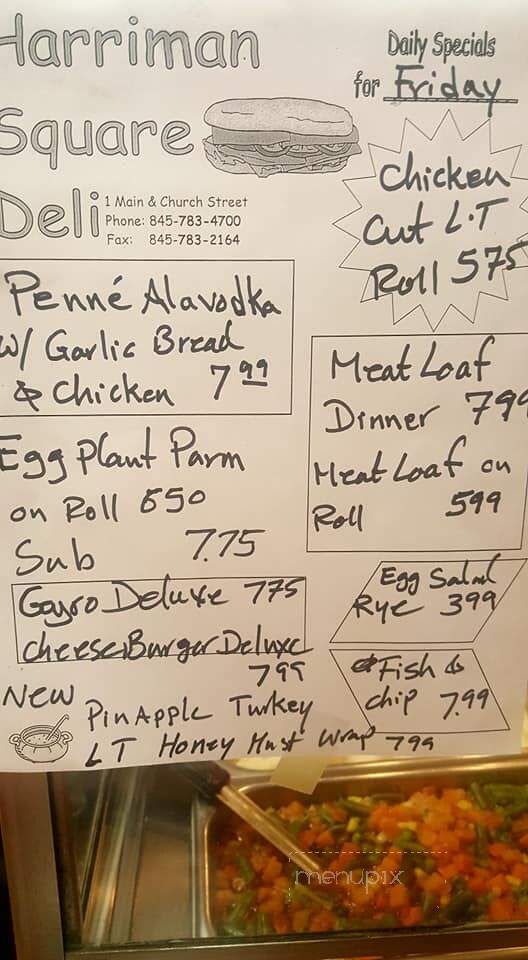 Harriman
Square
Deli
1 Main & Church Street
Phone: 845-783-4700
Fax: 845-783-2164
Daily Specials
for Friday
Chicken
Cut L.T
Roll 575
Penné Alavodka
w/ Garlic Bread
& Chicken 7 99
Meat Loaf
Dinner 799
Meat Loaf on
Roll 599
Egg Plant Parm
on Roll 650
Sub 7.75
Gayro Deluxe 775
cheeseBurger Deluxe
799
Egg Salad
Rye 399
Fish &
chip 7.99
New
PinApple Turkey
LT Honey Must Wrap 799
menupix